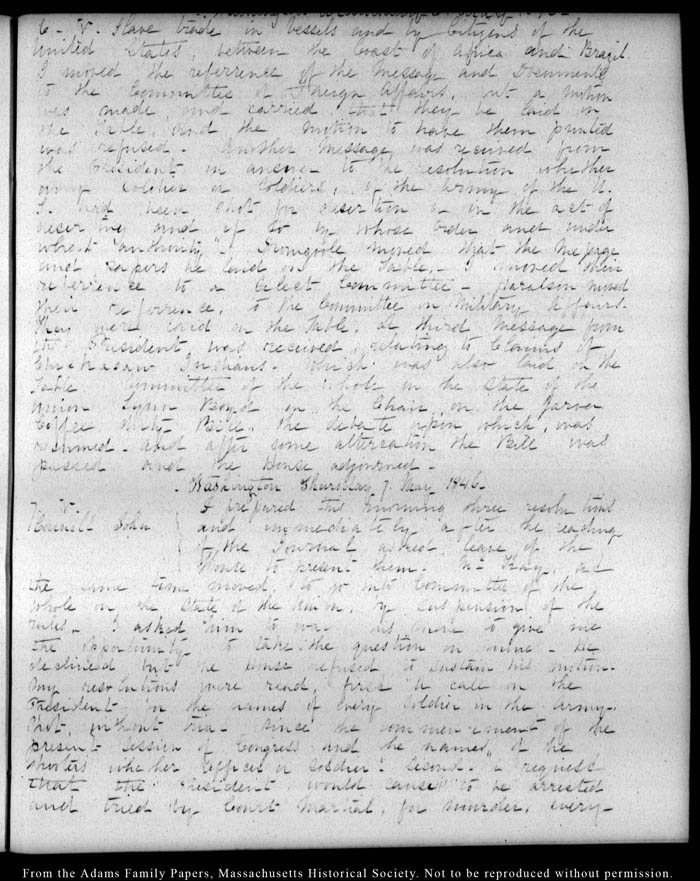 6. V. Slave trade in vessels and by Citizens of the
United States, between the Coast of Africa and Brazil.
I moved the referrence of the Message and Documents
to the Committee of Foreign Affairs, but a motion
was made, and carried that they be laid on
the Table, and the motion to have them printed
was refused. Another Message was received from
the President in answer to the resolution whether
any Soldier or Soldiers, of the army of the U.
S. had been shot for desertion or in the act of
deserting and if so by whose order and under
what authority. Dromgoole moved that the Message
and papers be laid on the Table,- I moved their
referrence to a Select Committee - Haralson moved
their referrence, to the Committee on Military Affairs.
They were laid on the Table. A third Message from
the President was received, relating to Claims of
Chickasaw Indians. Which was also laid on the
Table Committee of the whole on the State of the
Union Lynn Boyd in the Chair, on the
Coffee Bill. The debate upon which, was
resumed. and after some altercation the Bill was
passed and the House adjourned-
Washington Thursday 7. May 1846.
7. V.
John
I prepared this morning three resolutions
and immediately after the reading
of the Journal asked leave of the
House to present them. McKay, at
the same time moved, to go into Committee of the
whole on the State of the Union, by suspension of the
rules. I asked him to his move to give me
the opportunity to take the question on mine - He
declined but the House refused to sustain his motion.
My resolutions were read, first A call on the
President for the names of every Soldier in the army-
Shot, without trial since the commencement of the
present Session of Congress and the names, of the
shooters whether Officer or Soldier: Second. a request
that the President would cause to be arrested
and tried by Court Martial, for murder, every-
From the Adams Family Papers, Massachusetts Historical Society. Not to be reproduced without permission.